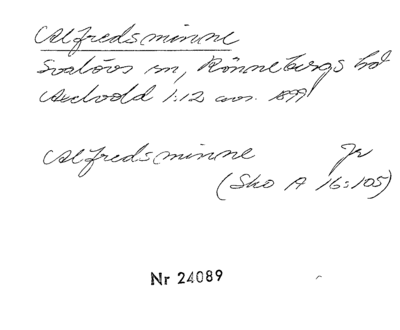 Alfredsminne
Svalövs sn, Rönnebergs hd
Axelvold 1:12 avs. 1899
Alfredsminne Jr
(Sko A 16:105)
Nr 24089